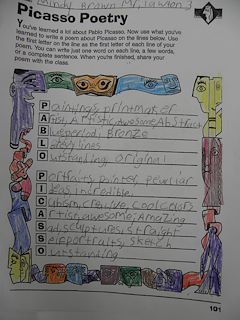 Mindy Brown Mr. Lawton 3
Picasso Poetry
You've learned a lot about Pablo Picasso. Now use what you've
learned to write a poem about Picasso on the lines below. Use
the first letter on the line as the first letter of each line of
your poem. You can write just one word on each line, a few words,
or a complete sentence. When you're finished, share your
poem with the class.
Paintings, printmaker
Artist, Artistic, awesome, Abstract
Blue period, Bronze
Lots, lines
Outstanding, original
Portraits, painter, peculiar
Ideas, incredible,
Cubism, creative, cool colors
Artist, awesome, Amazing
Sad, sculptures, straight
Self portraits, sketch
Outstanding
101